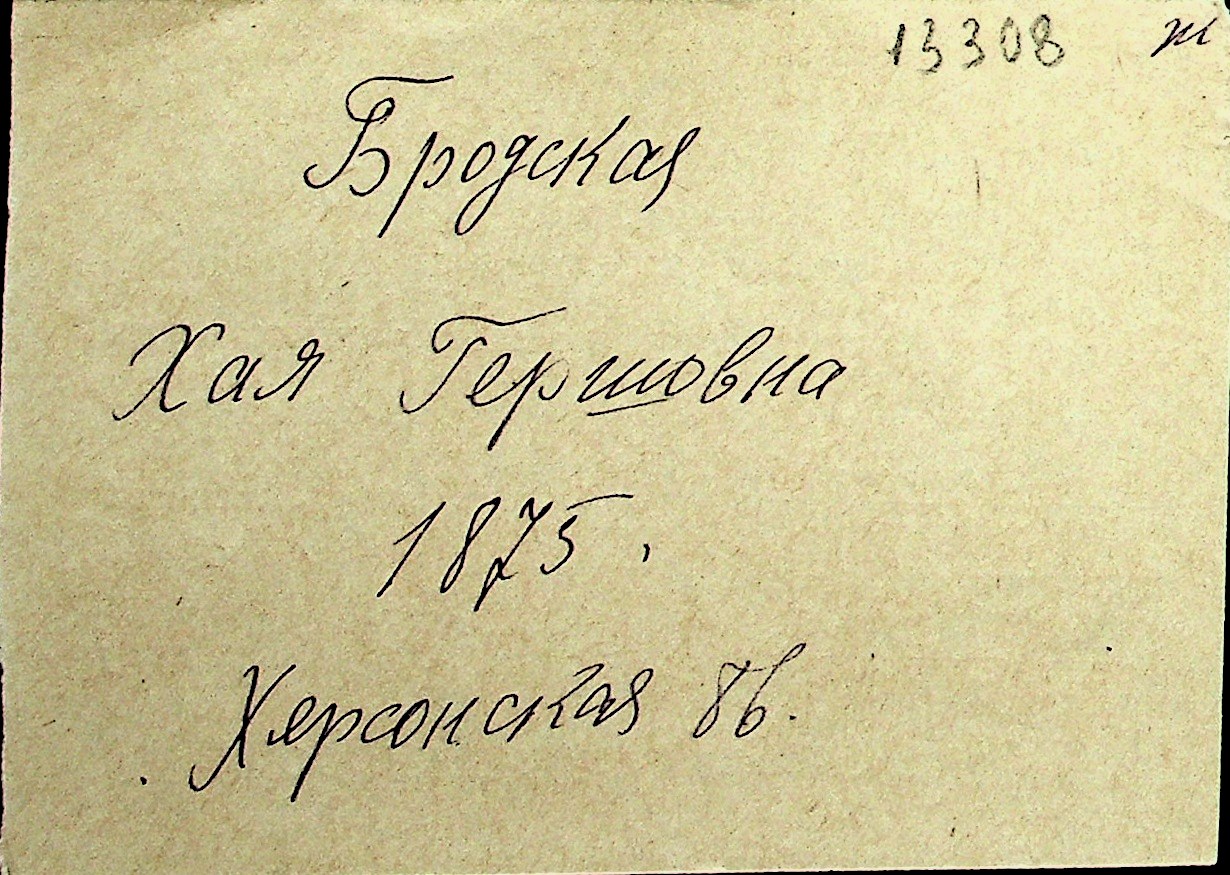 13308 ж
Бродская
Хая Гершовна
1875.
Херсонская 86.